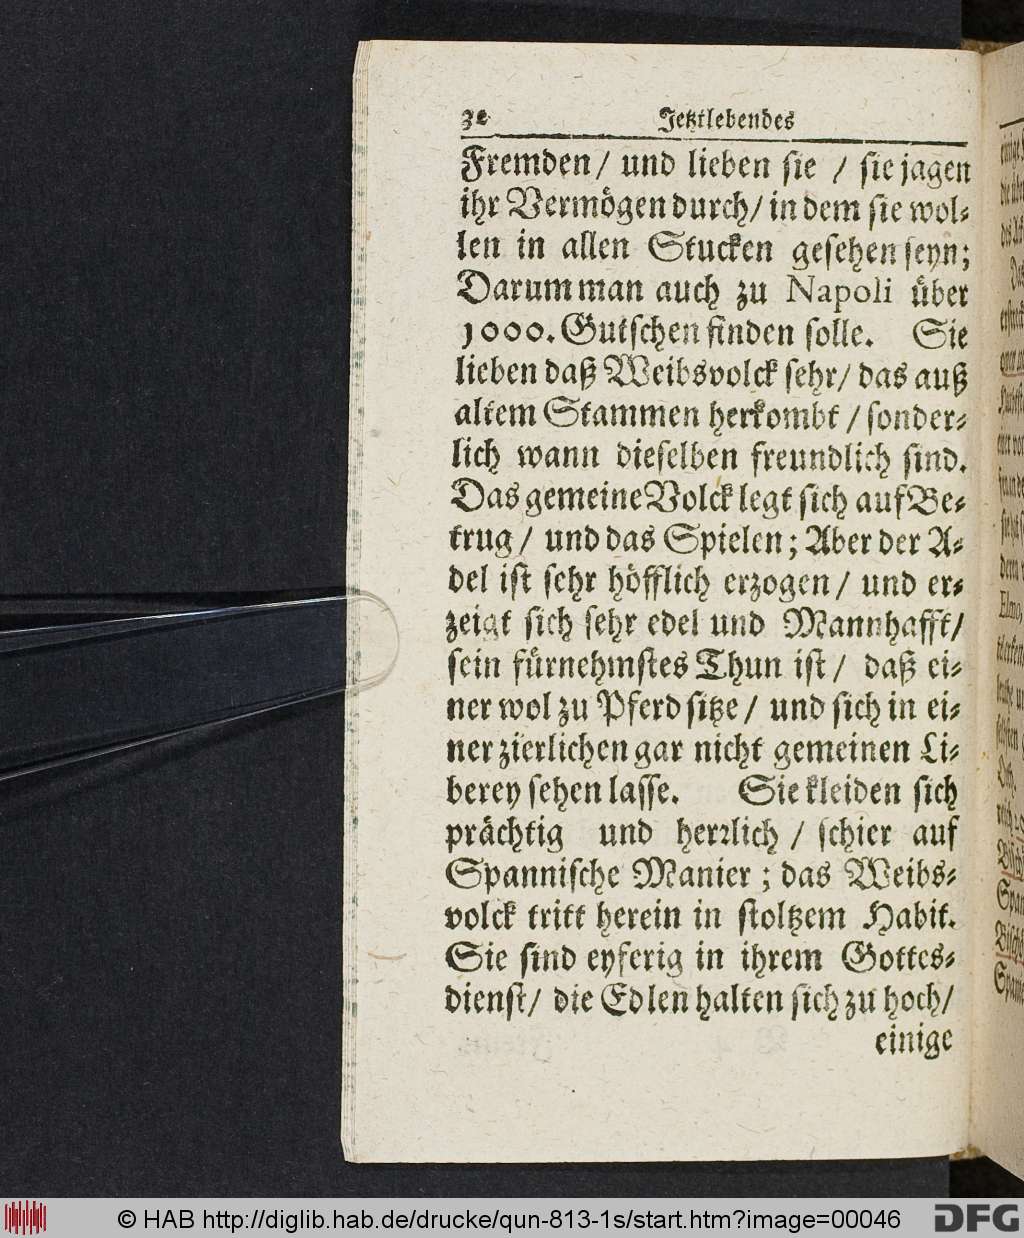 32 Jetztlebendes
Fremden/ und lieben sie / sie jagen
ihr Vermögen durch/ in dem sie wol-
len in allen Stucken gesehen seyn;
Darum man auch zu Napoli über
1000. Gutschen finden solle. Sie
lieben daß Weibsvolck sehr/ das auß
altem Stammen herkombt / sonder-
lich wann dieselben freundlich sind.
Das gemeine Volck legt sich auf Be-
trug / und das Spielen; Aber der A-
del ist sehr höfflich erzogen / und er-
zeigt sich sehr edel und Mannhafft/
sein fürnehmstes Thun ist / daß ei-
ner wol zu Pferd sitze / und sich in ei-
ner zierlichen gar nicht gemeinen Li-
berey sehen lasse. Sie kleiden sich
prächtig und herrlich / schier auf
Spannische Manier ; das Weibs-
volck tritt herein in stoltzem Habit.
Sie sind eyferig in ihrem Gottes-
dienst/ die Edlen halten sich zu hoch/
einige
© HAB http://diglib.hab.de/drucke/qun-813-1s/start.htm?image=00046
DFG